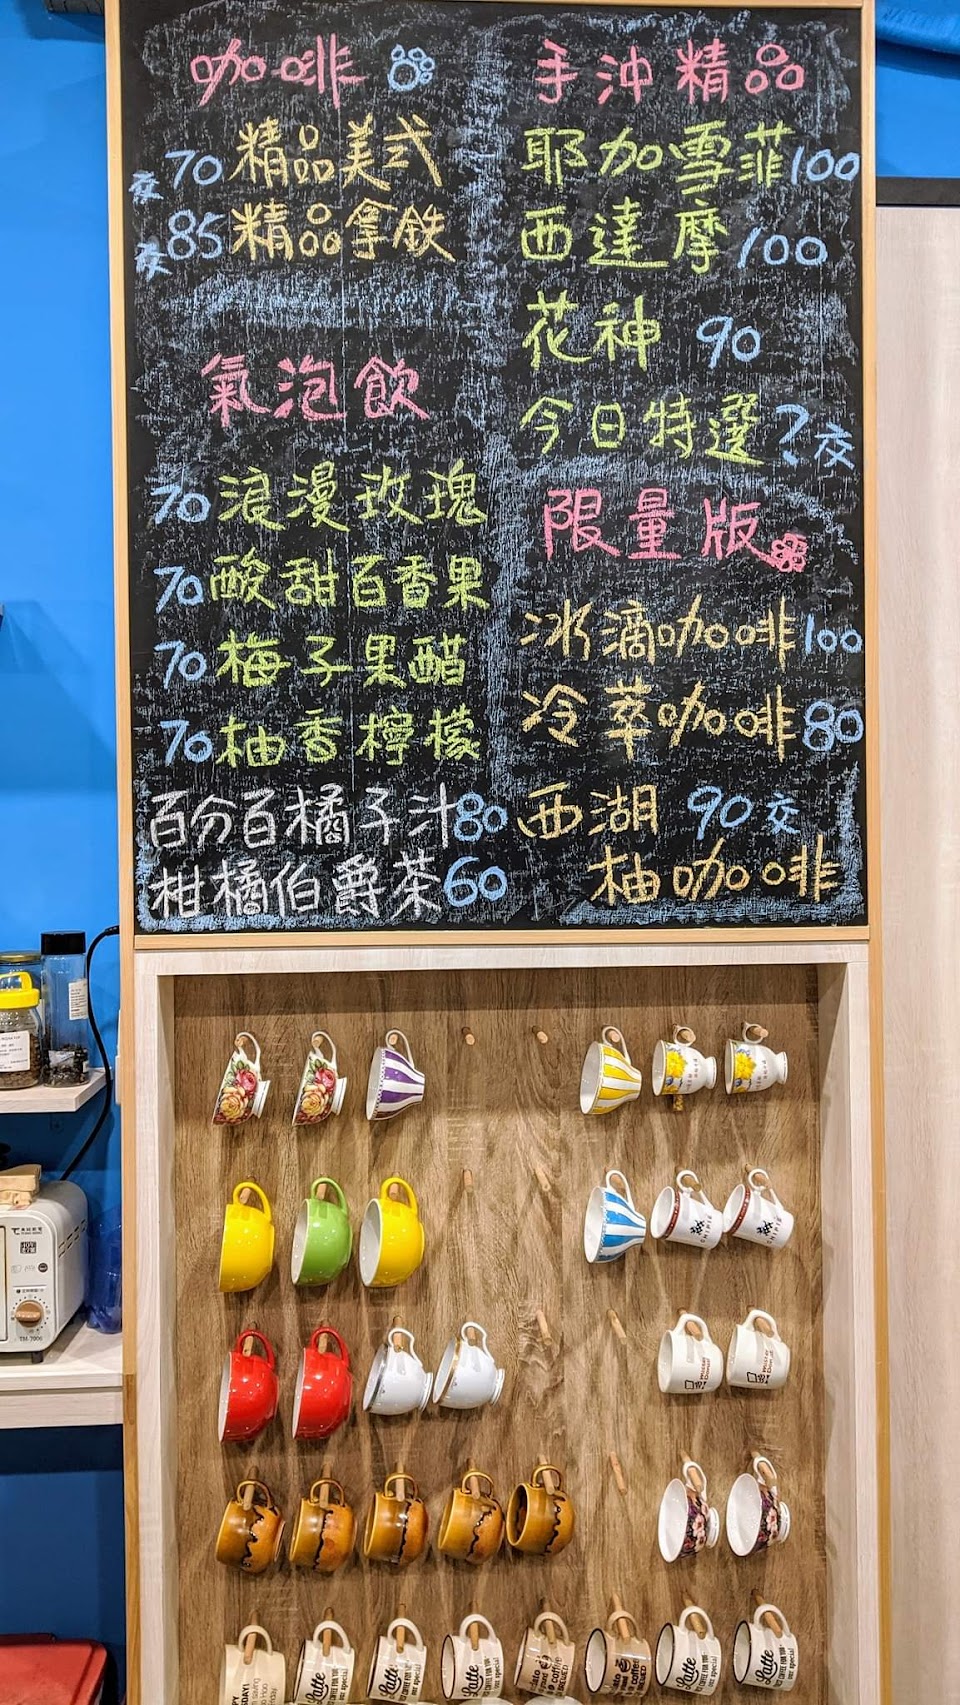 咖啡
交70 精品美式
交85 精品拿鐵
氣泡飲
70 浪漫玫瑰
70 酸甜百香果
70 梅子果醋
70 柚香檸檬
百分百橘子汁80
柑橘伯爵茶60
手沖精品
耶加雪菲100
西達摩100
花神 90
今日特選?交
限量版
冰滴咖啡100
冷萃咖啡80
西湖 90交
柚咖啡
TM-7006
Latte
Latte
Latte
Latte
Latte